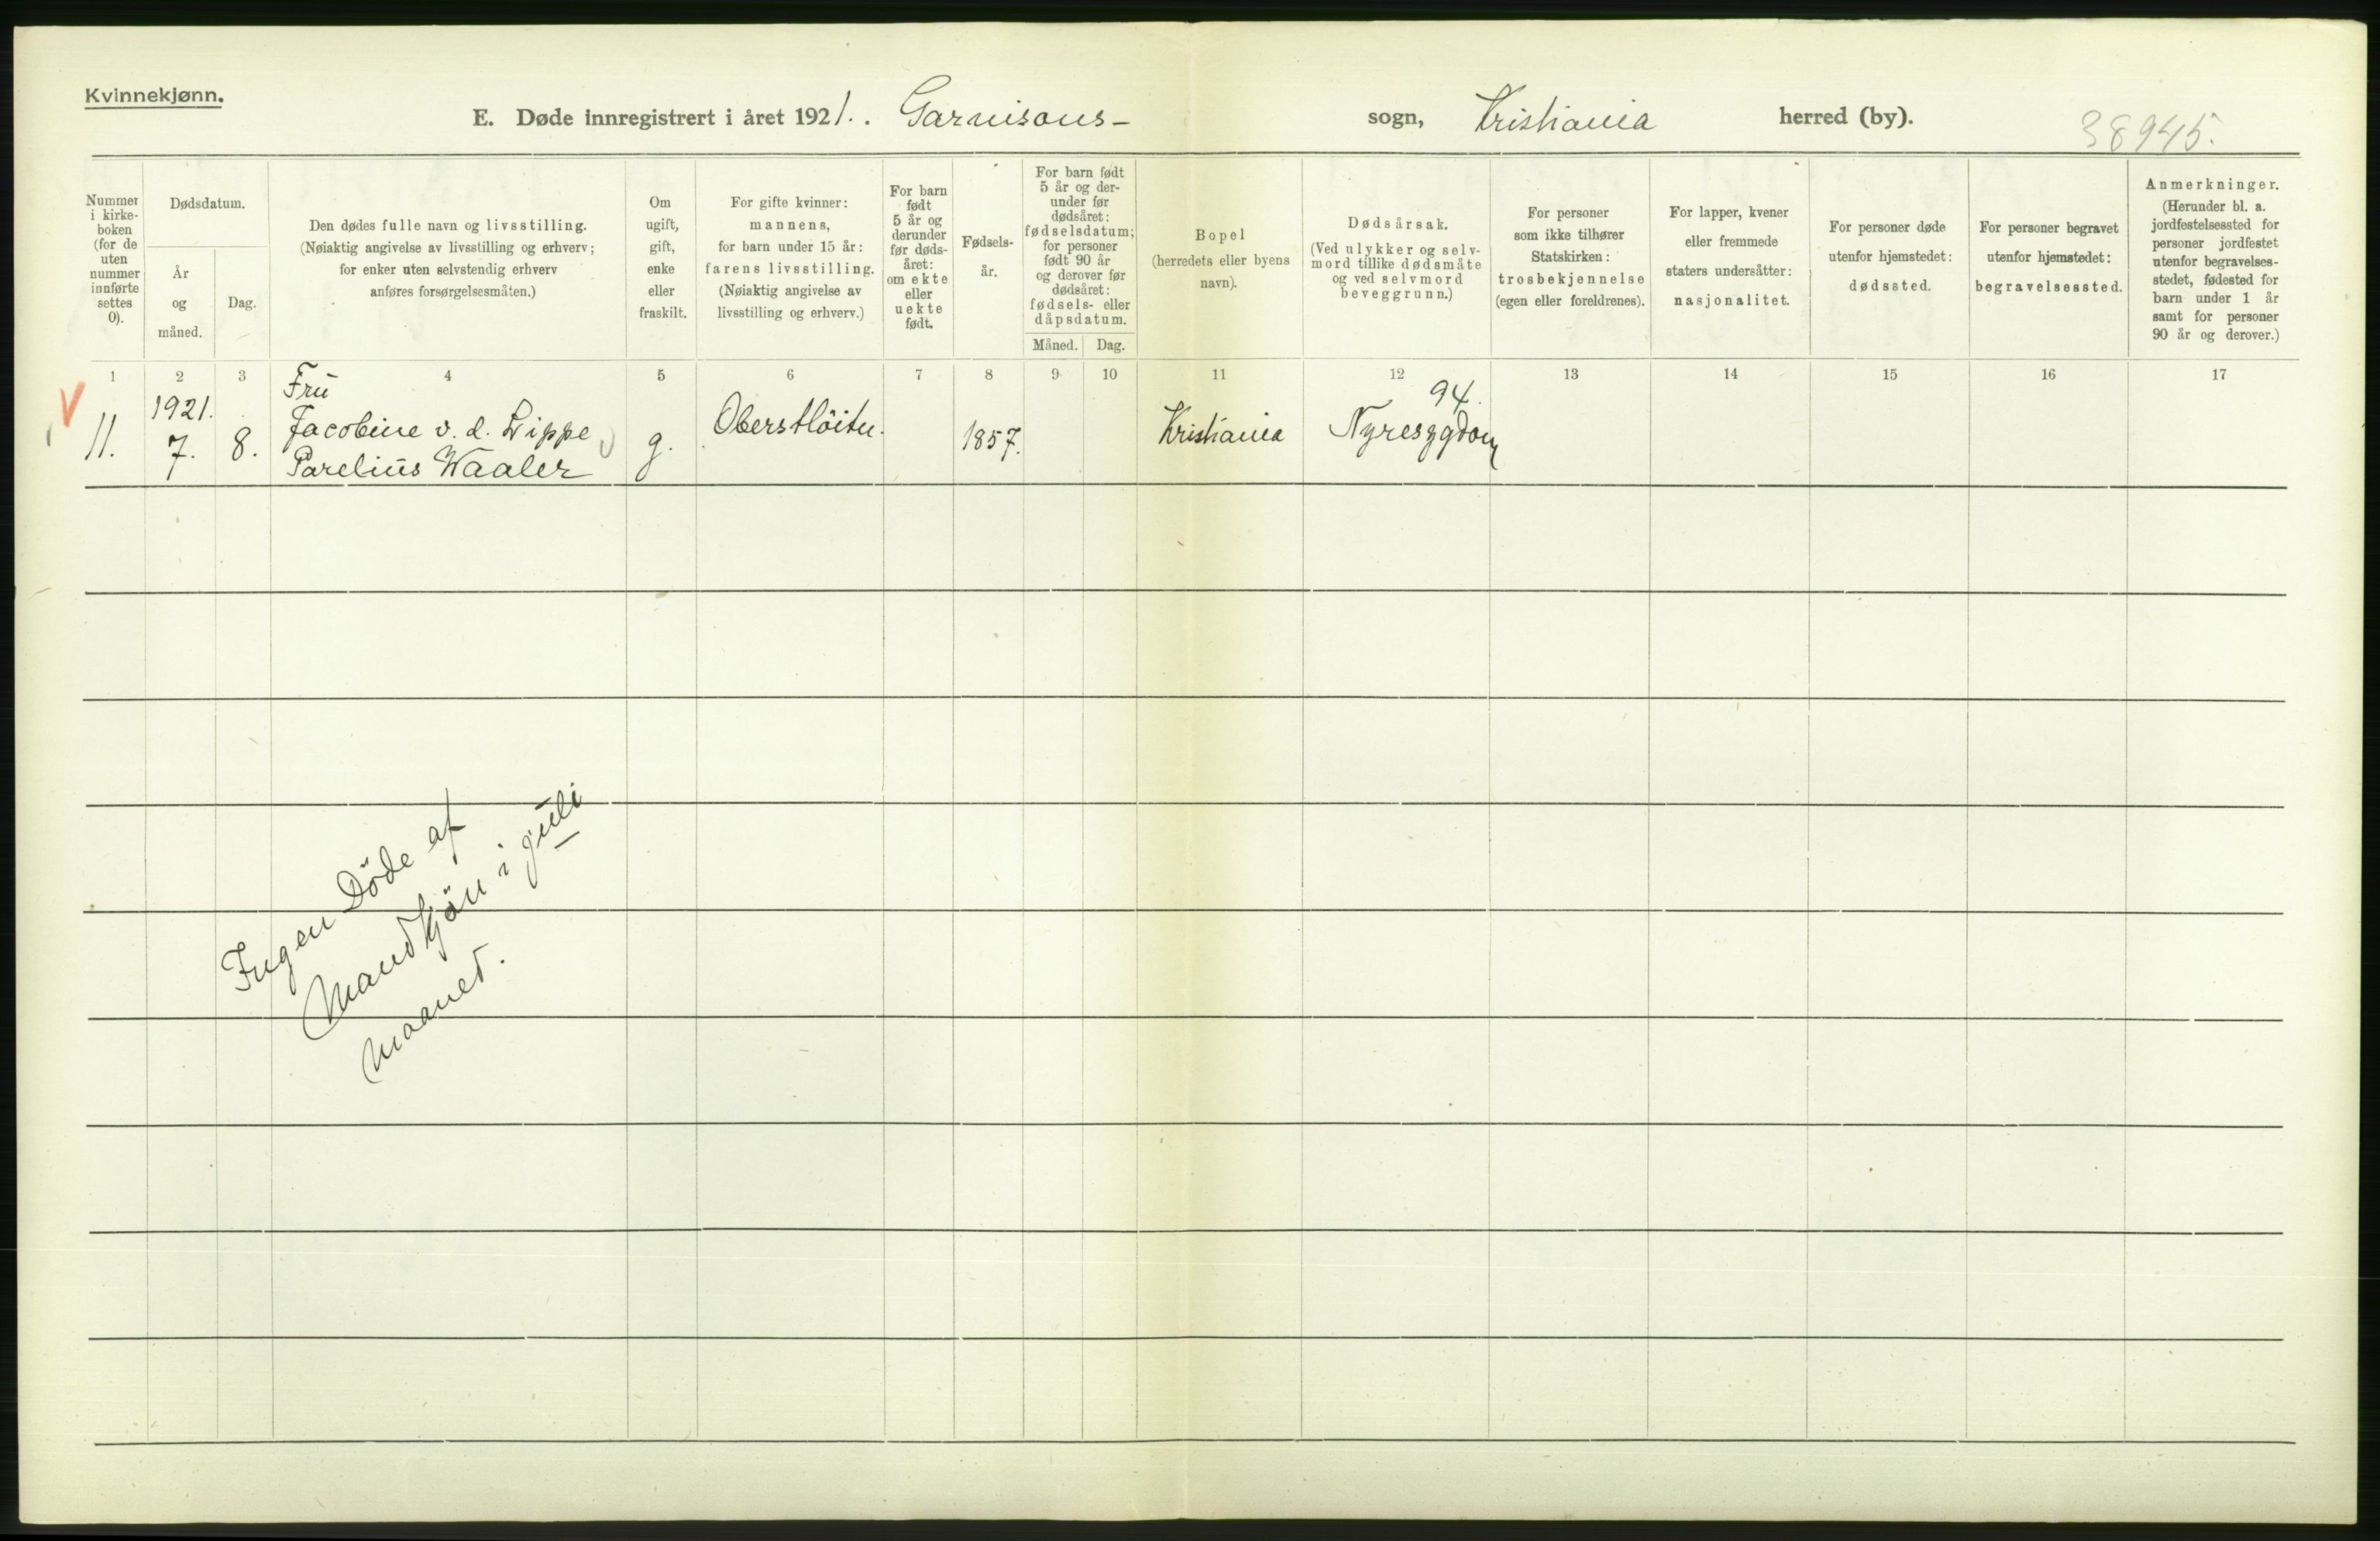 Kvinnekjønn.
E. Døde innregistrert i året 1921. Garnisons- sogn, Kristiania herred (by). 38945.
Nummer
i kirke-
boken
(for de
uten
nummer
innførte
settes
0).
Dødsdatum.
År
og
måned.
Dag.
Den dødes fulle navn og livsstilling.
(Nøiaktig angivelse av livsstilling og erhverv;
for enker uten selvstendig erhverv
anføres forsørgelsesmåten.)
Om
ugift,
gift,
enke
eller
fraskilt.
For gifte kvinner:
mannens,
for barn under 15 år:
farens livsstilling.
(Nøiaktig angivelse av
livsstilling og erhverv.)
For barn
født
5 år og
derunder
før døds-
året:
om ekte
eller
uekte
født.
Fødsels-
år.
For barn født
5 år og der-
under før
dødsåret:
fødselsdatum;
for personer
født 90 år
og derover før
dødsåret:
fødsels- eller
dåpsdatum.
Måned. Dag.
Bopel
(herredets eller byens
navn).
Dødsårsak.
(Ved ulykker og selv-
mord tillike dødsmåte
og ved selvmord
beveggrunn.)
For personer
som ikke tilhører
Statskirken:
trosbekjennelse
(egen eller foreldrenes).
For lapper, kvener
eller fremmede
staters undersåtter:
nasjonalitet.
For personer døde
utenfor hjemstedet:
dødssted.
For personer begravet
utenfor hjemstedet:
begravelsessted.
Anmerkninger.
(Herunder bl. a.
jordfestelsessted for
personer jordfestet
utenfor begravelses-
stedet, fødested for
barn under 1 år
samt for personer
90 år og derover.)
1 2 3 4 5 6 7 8 9 10 11 12 13 14 15 16 17
V
11.
1921.
7.
8.
Frü
Jacobine v. d. Lippe
Parelius Waaler
g.
Oberstlöitn.
1857.
Kristiania
94.
Nyresygdom
Ingen Döde af
Mandkjön i juli
maaned.